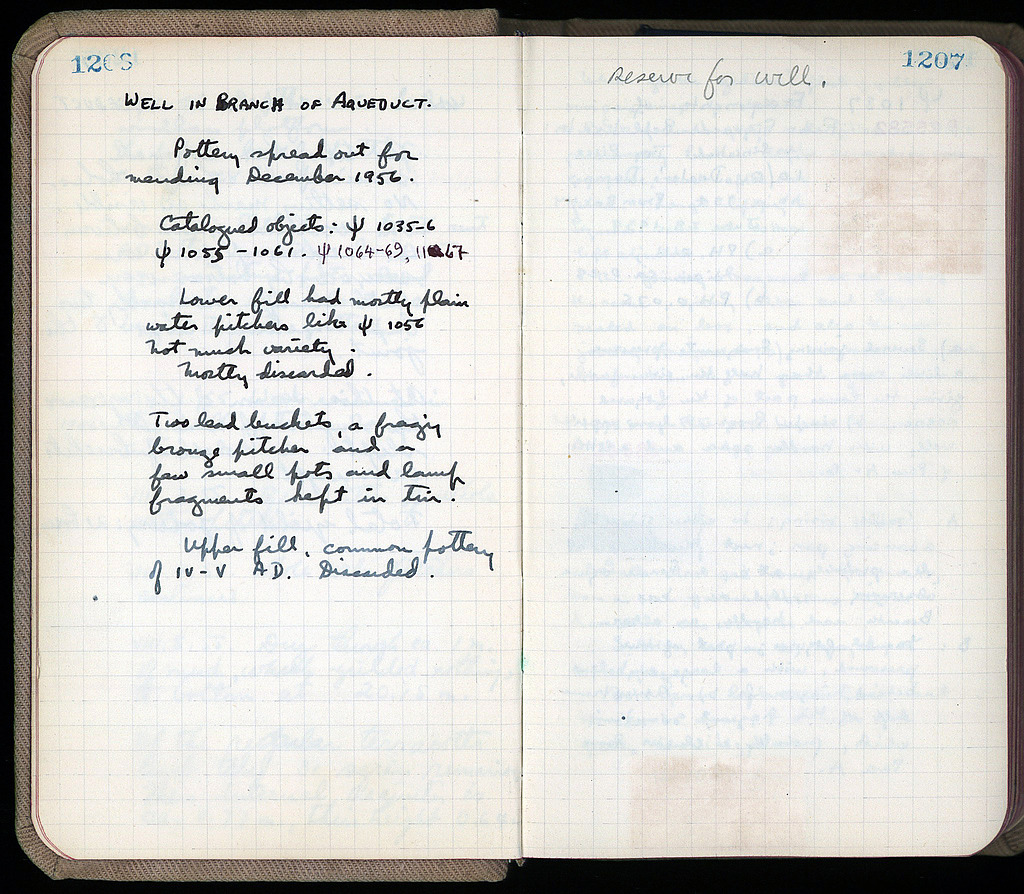 1206
WELL IN BRANCH OF AQUEDUCT.
Pottery spread out for
mending December 1956.
Catalogued objects: ψ 1035-6
ψ 1055 - 1061. ψ 1064-69, 1167
Lower fill had mostly plain
water pitchers like ψ 1056
not much variety.
Mostly discarded.
Two lead buckets, a fragy
bronze pitcher and a
few small pots and lamp
fragments kept in tin.
Upper fill, common pottery
of IV-V AD. Discarded.
1207
Reserve for well.